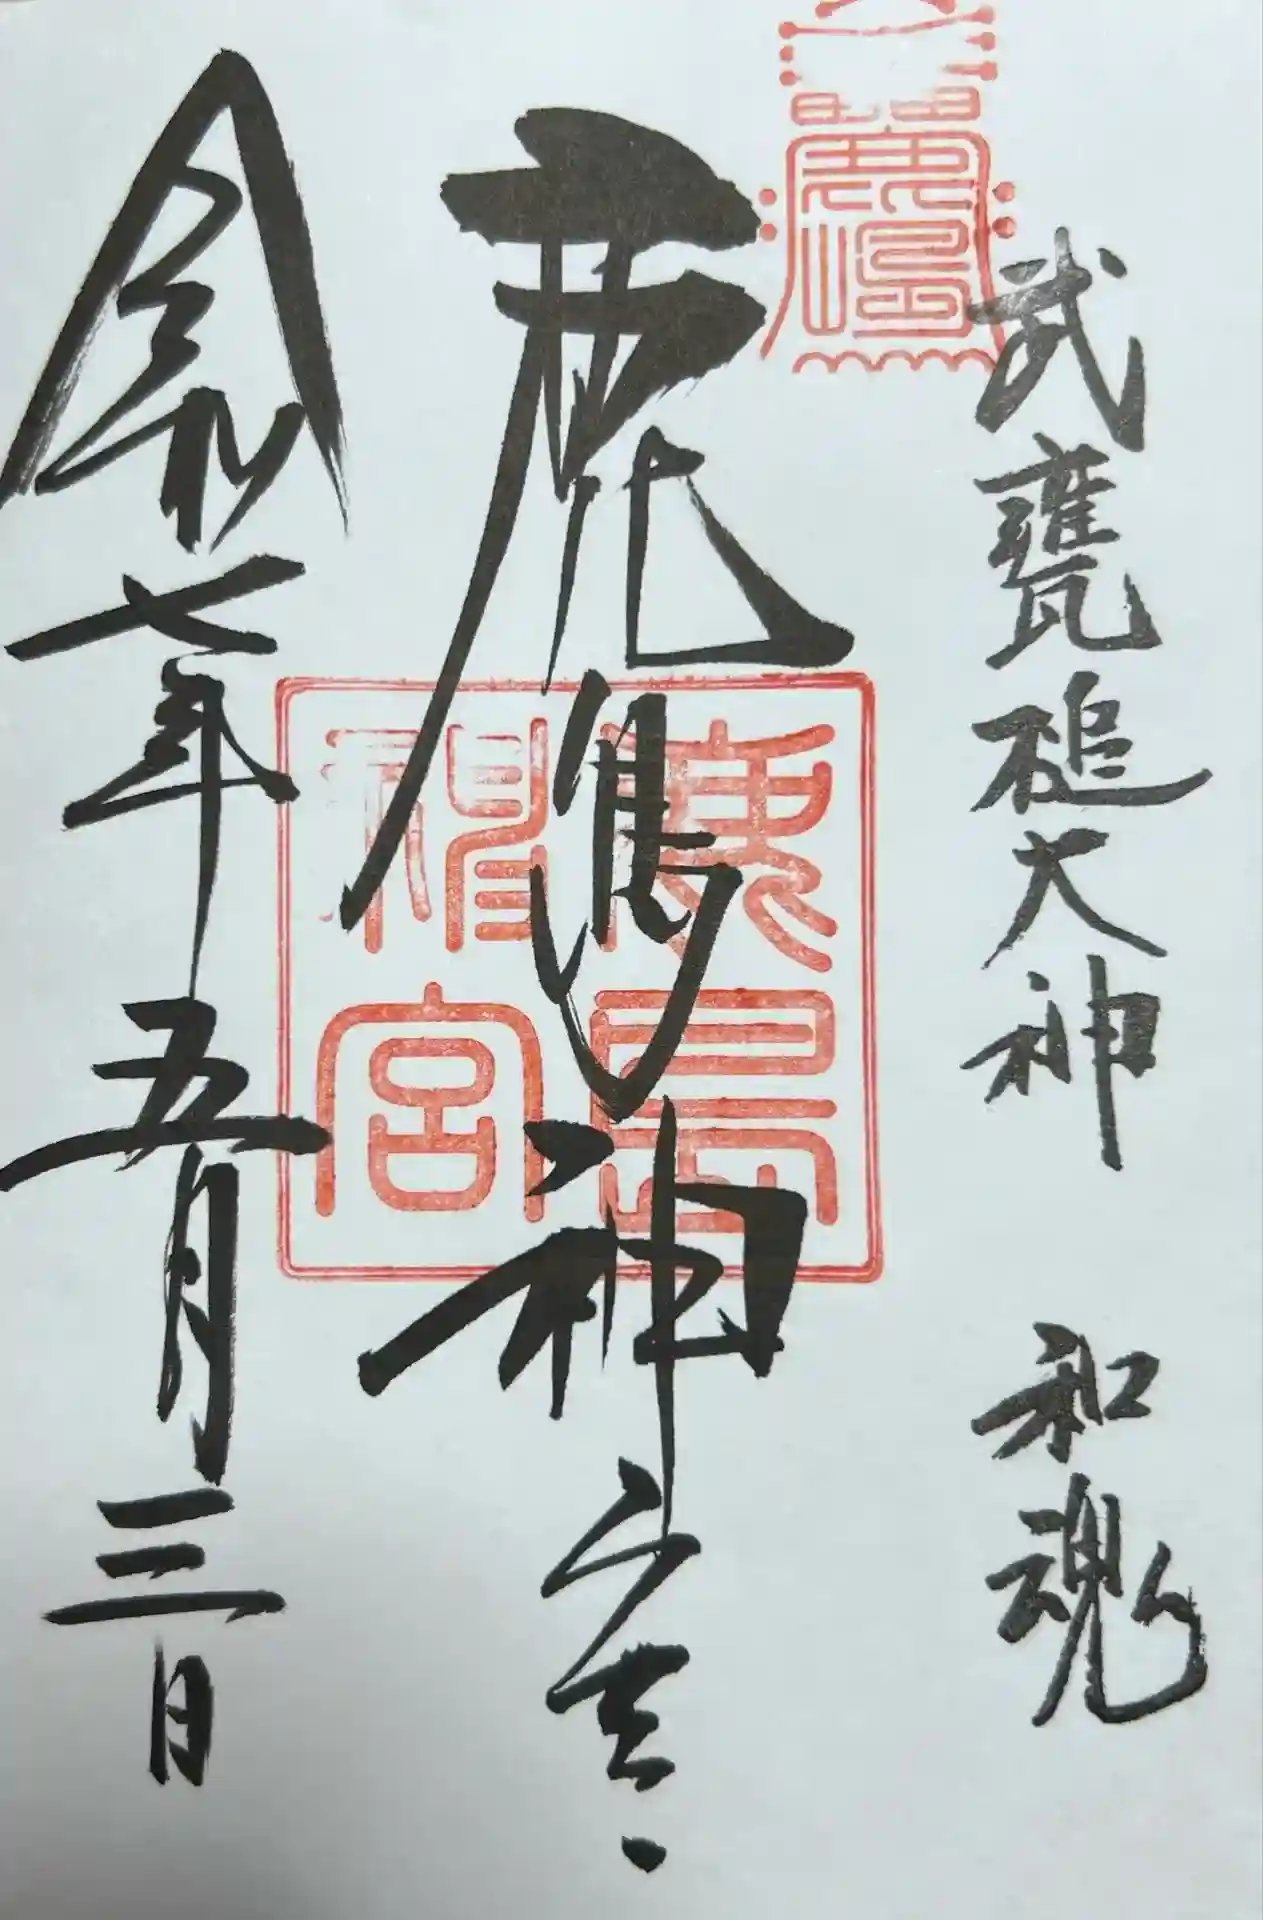 武甕槌大神 和魂
鹿島神宮
鹿島神宮
令和七年五月三日